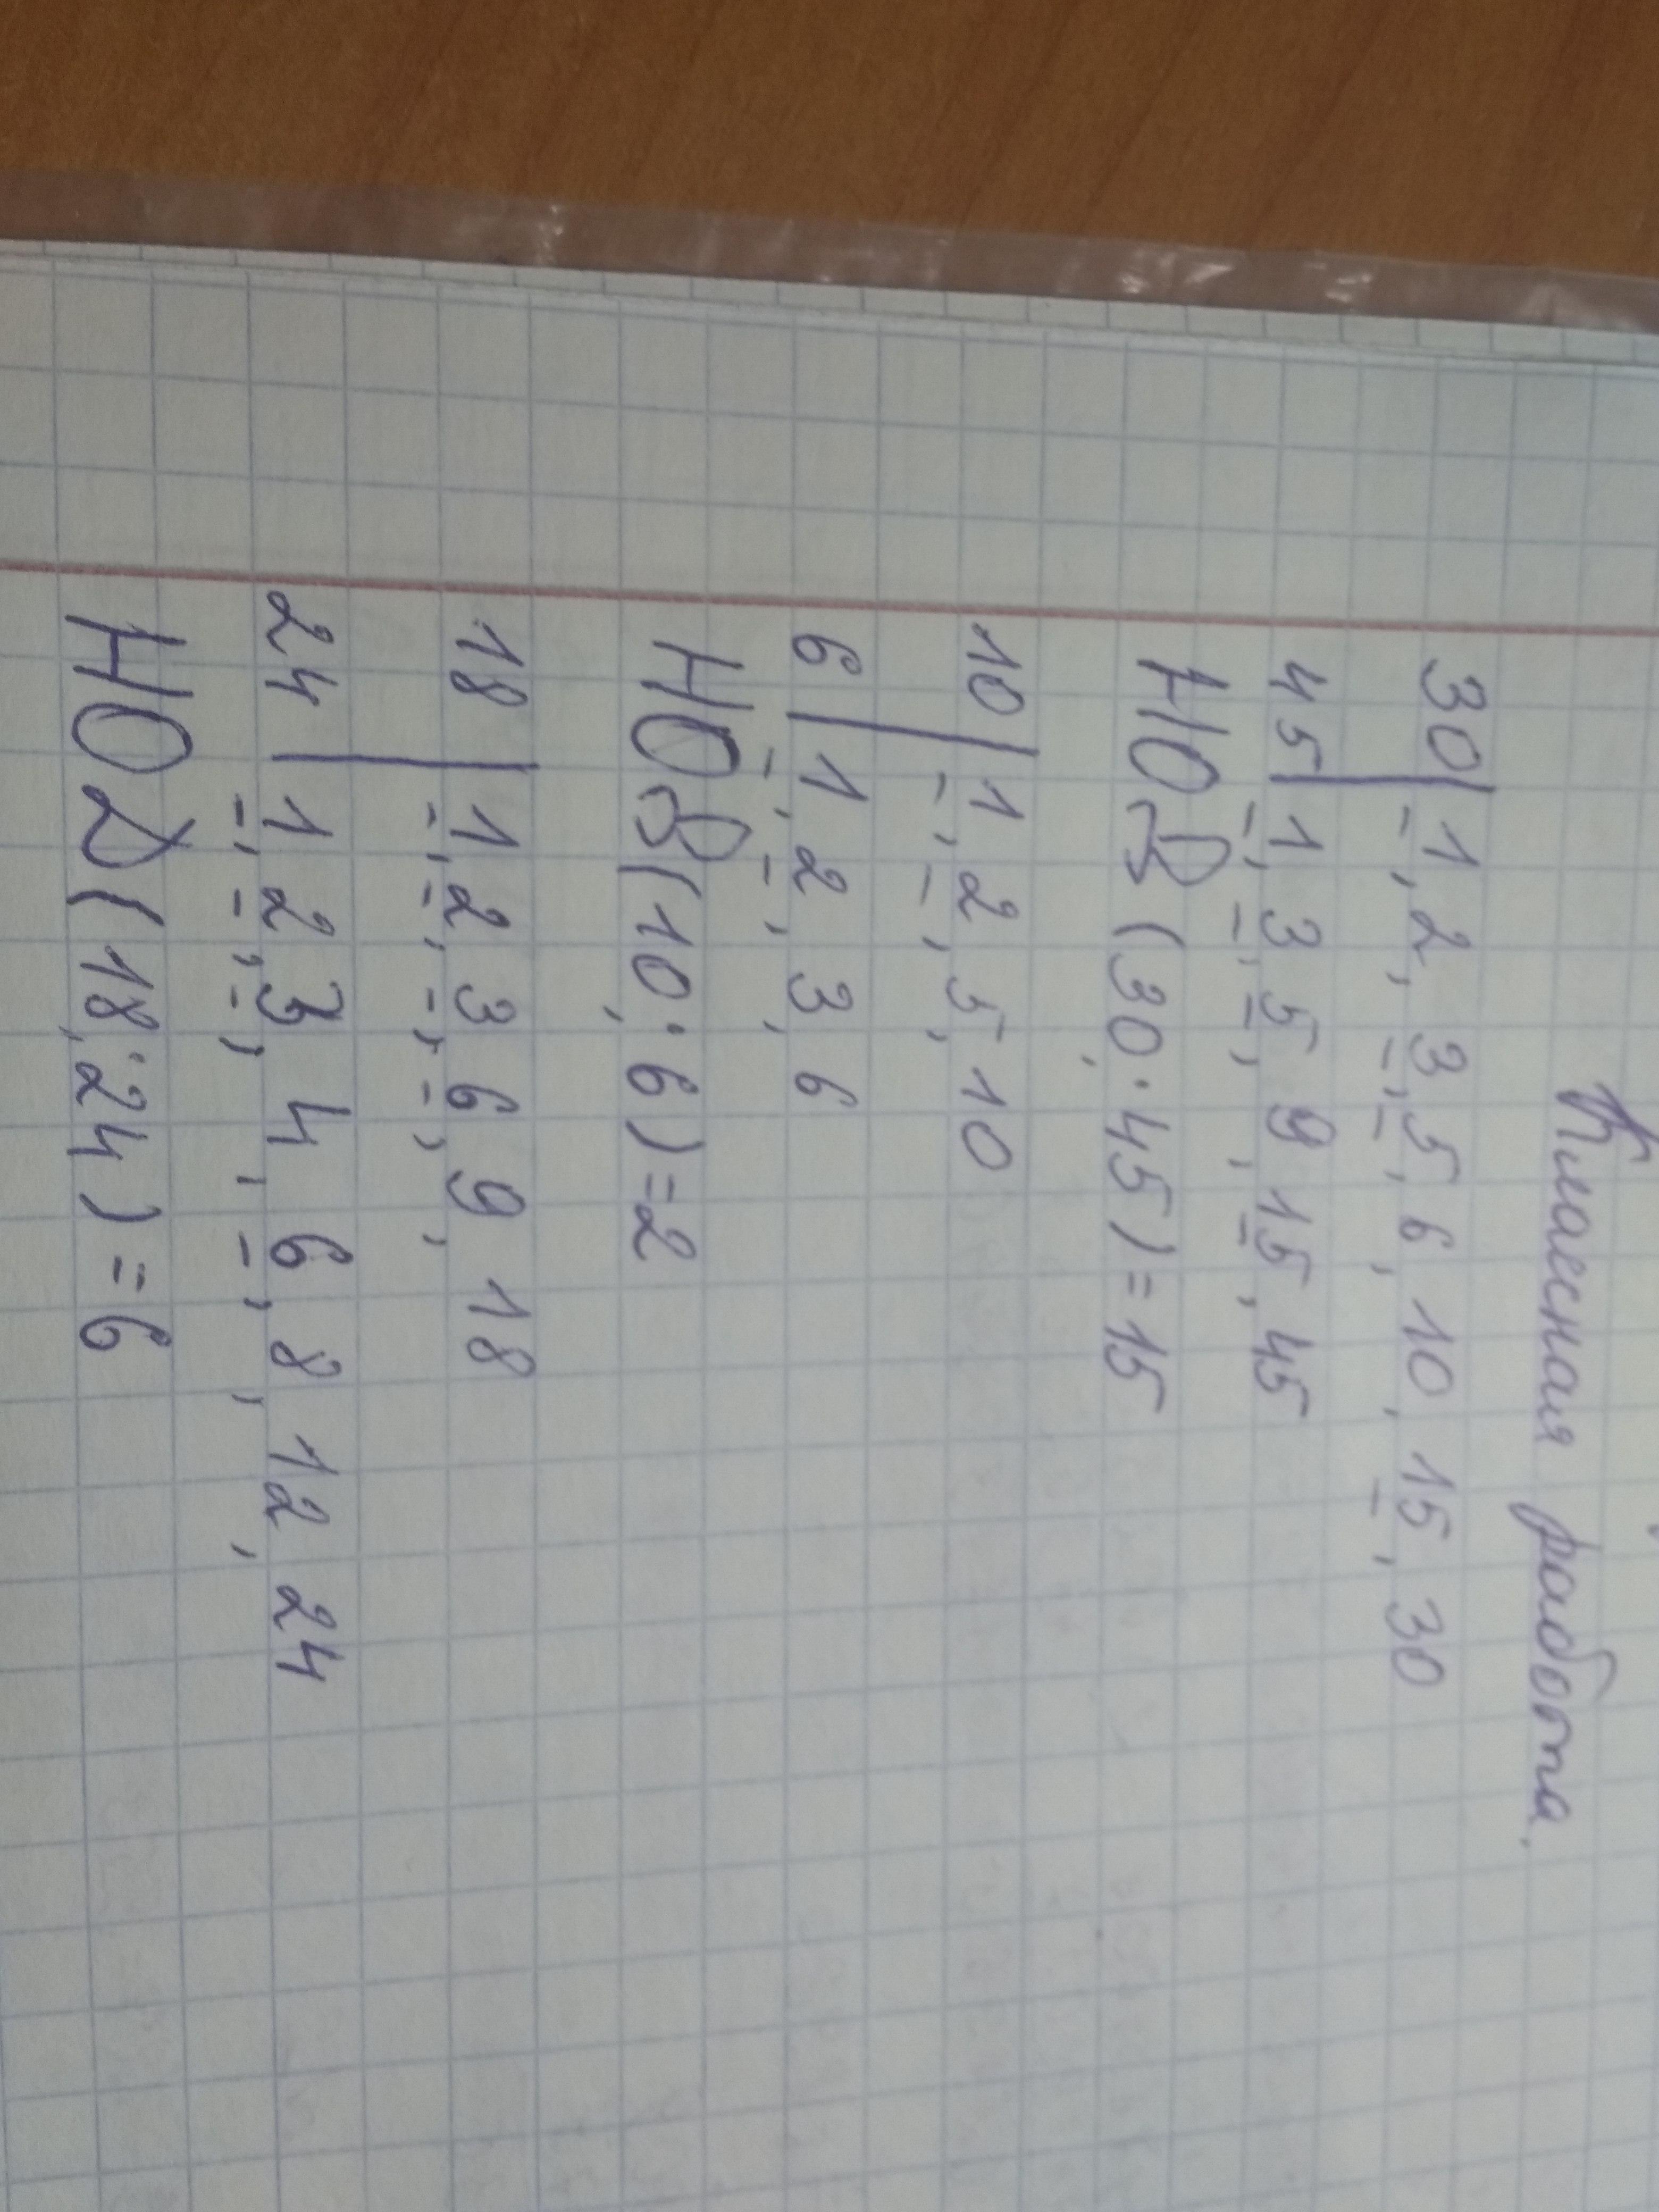 Классная работа.
30 | 1, 2, 3, 5, 6, 10, 15, 30
45 | 1, 3, 5, 9, 15, 45
НОД (30; 45) = 15
10 | 1, 2, 5, 10
6 | 1, 2, 3, 6
НОД (10; 6) = 2
18 | 1, 2, 3, 6, 9, 18
24 | 1, 2, 3, 4, 6, 8, 12, 24
НОД (18; 24) = 6